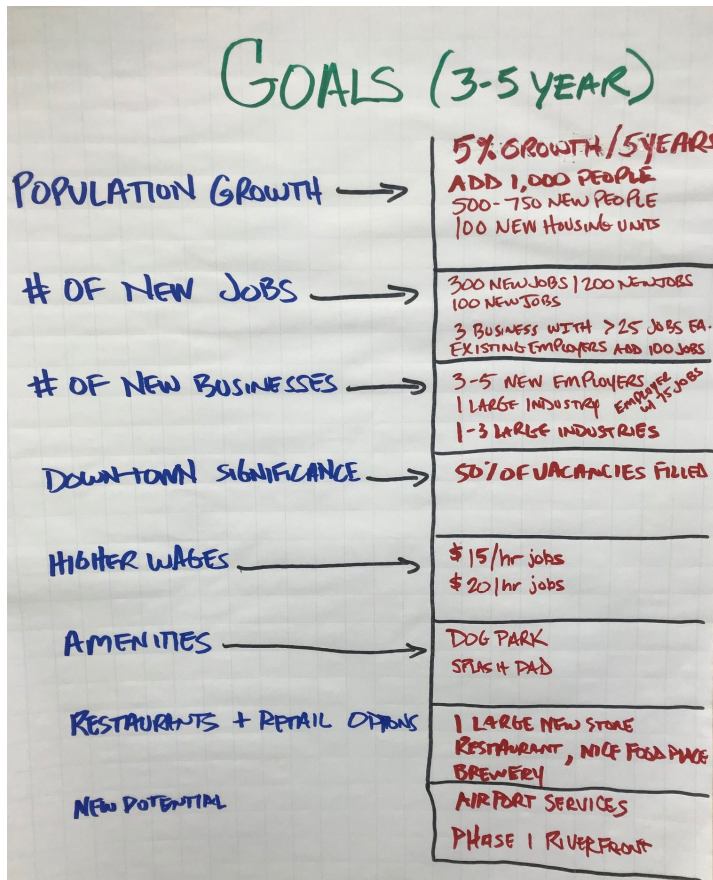 GOALS (3-5 YEAR)
POPULATION GROWTH
5% GROWTH / 5 YEARS
ADD 1,000 PEOPLE
500-750 NEW PEOPLE
100 NEW HOUSING UNITS
# OF NEW JOBS
300 NEW JOBS | 200 NEW JOBS
100 NEW JOBS
3 BUSINESS WITH >25 JOBS EA.
EXISTING EMPLOYERS ADD 100 JOBS
# OF NEW BUSINESSES
3-5 NEW EMPLOYERS
1 LARGE INDUSTRY
EMPLOYER
W/ 75 JOBS
1-3 LARGE INDUSTRIES
DOWNTOWN SIGNIFICANCE
50% OF VACANCIES FILLED
HIGHER WAGES
$15/hr jobs
$20/hr jobs
AMENITIES
DOG PARK
SPLASH PAD
RESTAURANTS + RETAIL OPTIONS
1 LARGE NEW STORE
RESTAURANT, NICE FOOD PLACE
BREWERY
NEW POTENTIAL
AIRPORT SERVICES
PHASE 1 RIVERFRONT